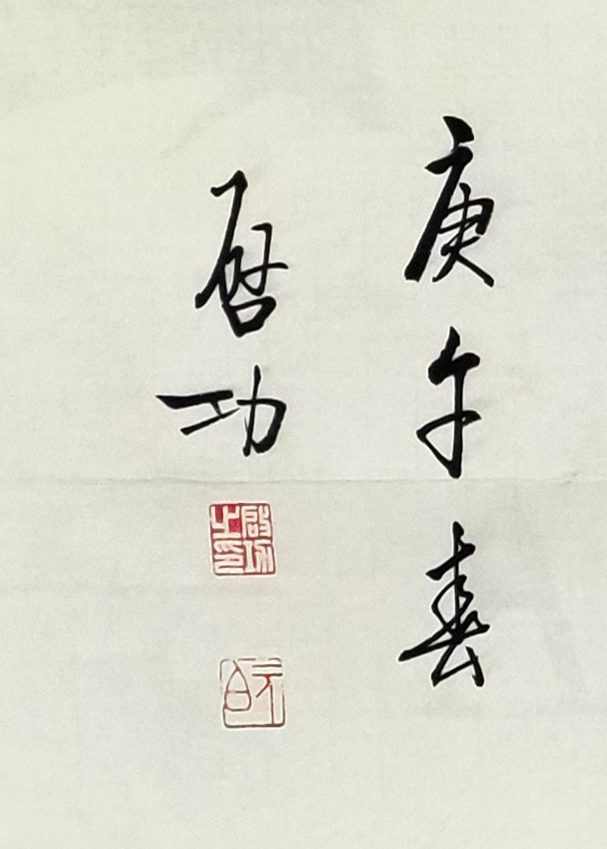 庚午春
启功
启功之印
元白